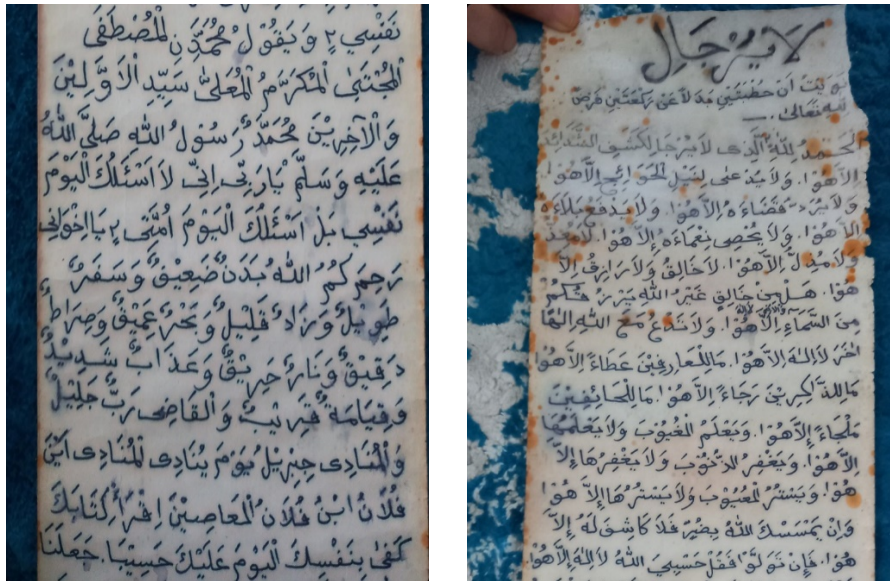 نَفْسِي ٢ وَيَقُوْلُ مُحَمَّدُنِ الْمُصْطَفٰى
الْمُجْتَبٰى الْمُكَرَّمُ الْمُعَلّٰى سَيِّدِ الْاَوَّلِيْنَ
وَالْآخِرِيْنَ مُحَمَّدٌ رَسُوْلُ اللّٰهِ صَلَّى اللّٰهُ
عَلَيْهِ وَسَلَّمَ يَارَبِّى اِنِّى لَا اَسْئَلُكَ الْيَوْمَ
نَفْسِي بَلْ اَسْئَلُكَ الْيَوْمَ اُمَّتِى ٢ يَا اِخْوَانِى
رَحِمَكُمُ اللّٰهُ بَدَنٌ ضَعِيْقٌ وَسَفَرٌ
طَوِيْلٌ وَزَادٌ قَلِيْلٌ وَبَحْرٌ عَمِيْقٌ وَصِرَاطٌ
دَقِيْقٌ وَنَارٌ حَرِيْقٌ وَعَذَابٌ شَدِيْدٌ
وَقِيَامَةٌ قَرِيْبٌ وَالْقَاضِى رَبٌّ جَلِيْلٌ
وَالْمُنَادِى جِبْرِيْلُ يَوْمَ يُنَادِى الْمُنَادِى اَيْنَ
فُلَانُ ابْنُ فُلَانُ الْمَعَاصِيْنَ اِقْرَأْ كِتَابَكَ
كَفٰى بِنَفْسِكَ الْيَوْمَ عَلَيْكَ حَسِيْبًا. جَعَلَنَا
لَا يَرْجَالِ
اَنْ خُطْبَتَيْنِ بَدَلًا عَنْ رَكْعَتَيْنِ فَرْضَ
لِلّٰهِ تَعَالٰى.
اَلْحَمْدُ لِلّٰهِ الَّذِى لَا يَرْجَا لِكَشْفِ الشَّدَائِدِ
اِلَّا هُوَا. وَلَا يُدْعٰى لِنَيْلِ الْحَوَائِجِ اِلَّا هُوَا
وَلَا يَرُدُّ قَضَاءَهُ اِلَّا هُوَا. وَلَا يَدْفَعُ بَلَاءَهُ
اِلَّا هُوَا. وَلَا يُحْصِى نِعْمَاءَهُ اِلَّا هُوَا.
وَلَا اِلَّا هُوَا. لَا خَالِقُ وَلَا رَازِقُ اِلَّا
هُوَا. هَلْ مِنْ خَالِقٍ غَيْرُ اللّٰهِ يَرْزُقُكُمْ
مِنَ السَّمَاءِ اِلَّا هُوَا. وَلَا تَدْعُ مَعَ اللّٰهِ اِلٰهًا
اٰخَرَ لَا اِلٰهَ اِلَّا هُوَا. مَا لِلْعَارِفِيْنَ عَطَاءً اِلَّا هُوَا
مَا لِلذَّاكِرِيْنَ رَجَاءً اِلَّا هُوَا. مَا لِلْخَائِفِيْنَ
مَلْجَاءً اِلَّا هُوَا. وَيَعْلَمُ الْغُيُوْبَ وَلَا يَعْلَمُهَا
اِلَّا هُوَا. وَيَغْفِرُ الذُّنُوْبَ وَلَا يَغْفِرُهَا اِلَّا
هُوَا. وَيَسْتُرُ الْعُيُوْبَ وَلَا يَسْتُرُهَا اِلَّا هُوَا
وَاِنْ يَمْسَسْكَ اللّٰهُ بِضُرٍّ فَلَا كَاشِفَ لَهُ اِلَّا
هُوَا. فَاِنْ تَوَلَّوْا فَقُلْ حَسْبِيَ اللّٰهُ لَا اِلٰهَ اِلَّا هُوَا